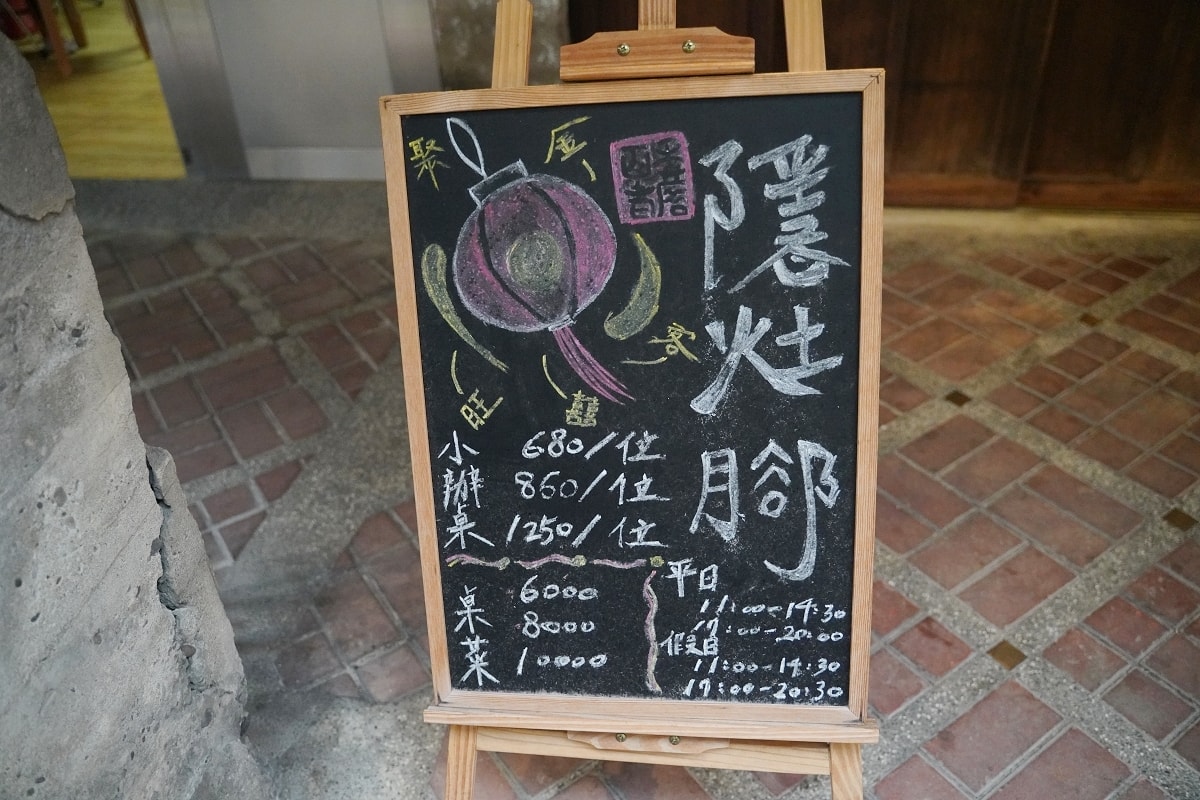 隱灶腳
聚
金
客
囍
旺
小辦桌
680/位
860/位
1250/位
桌菜
6000
8000
10000
平日
11:00-14:30
17:00-20:00
假日
11:00-14:30
17:00-20:30